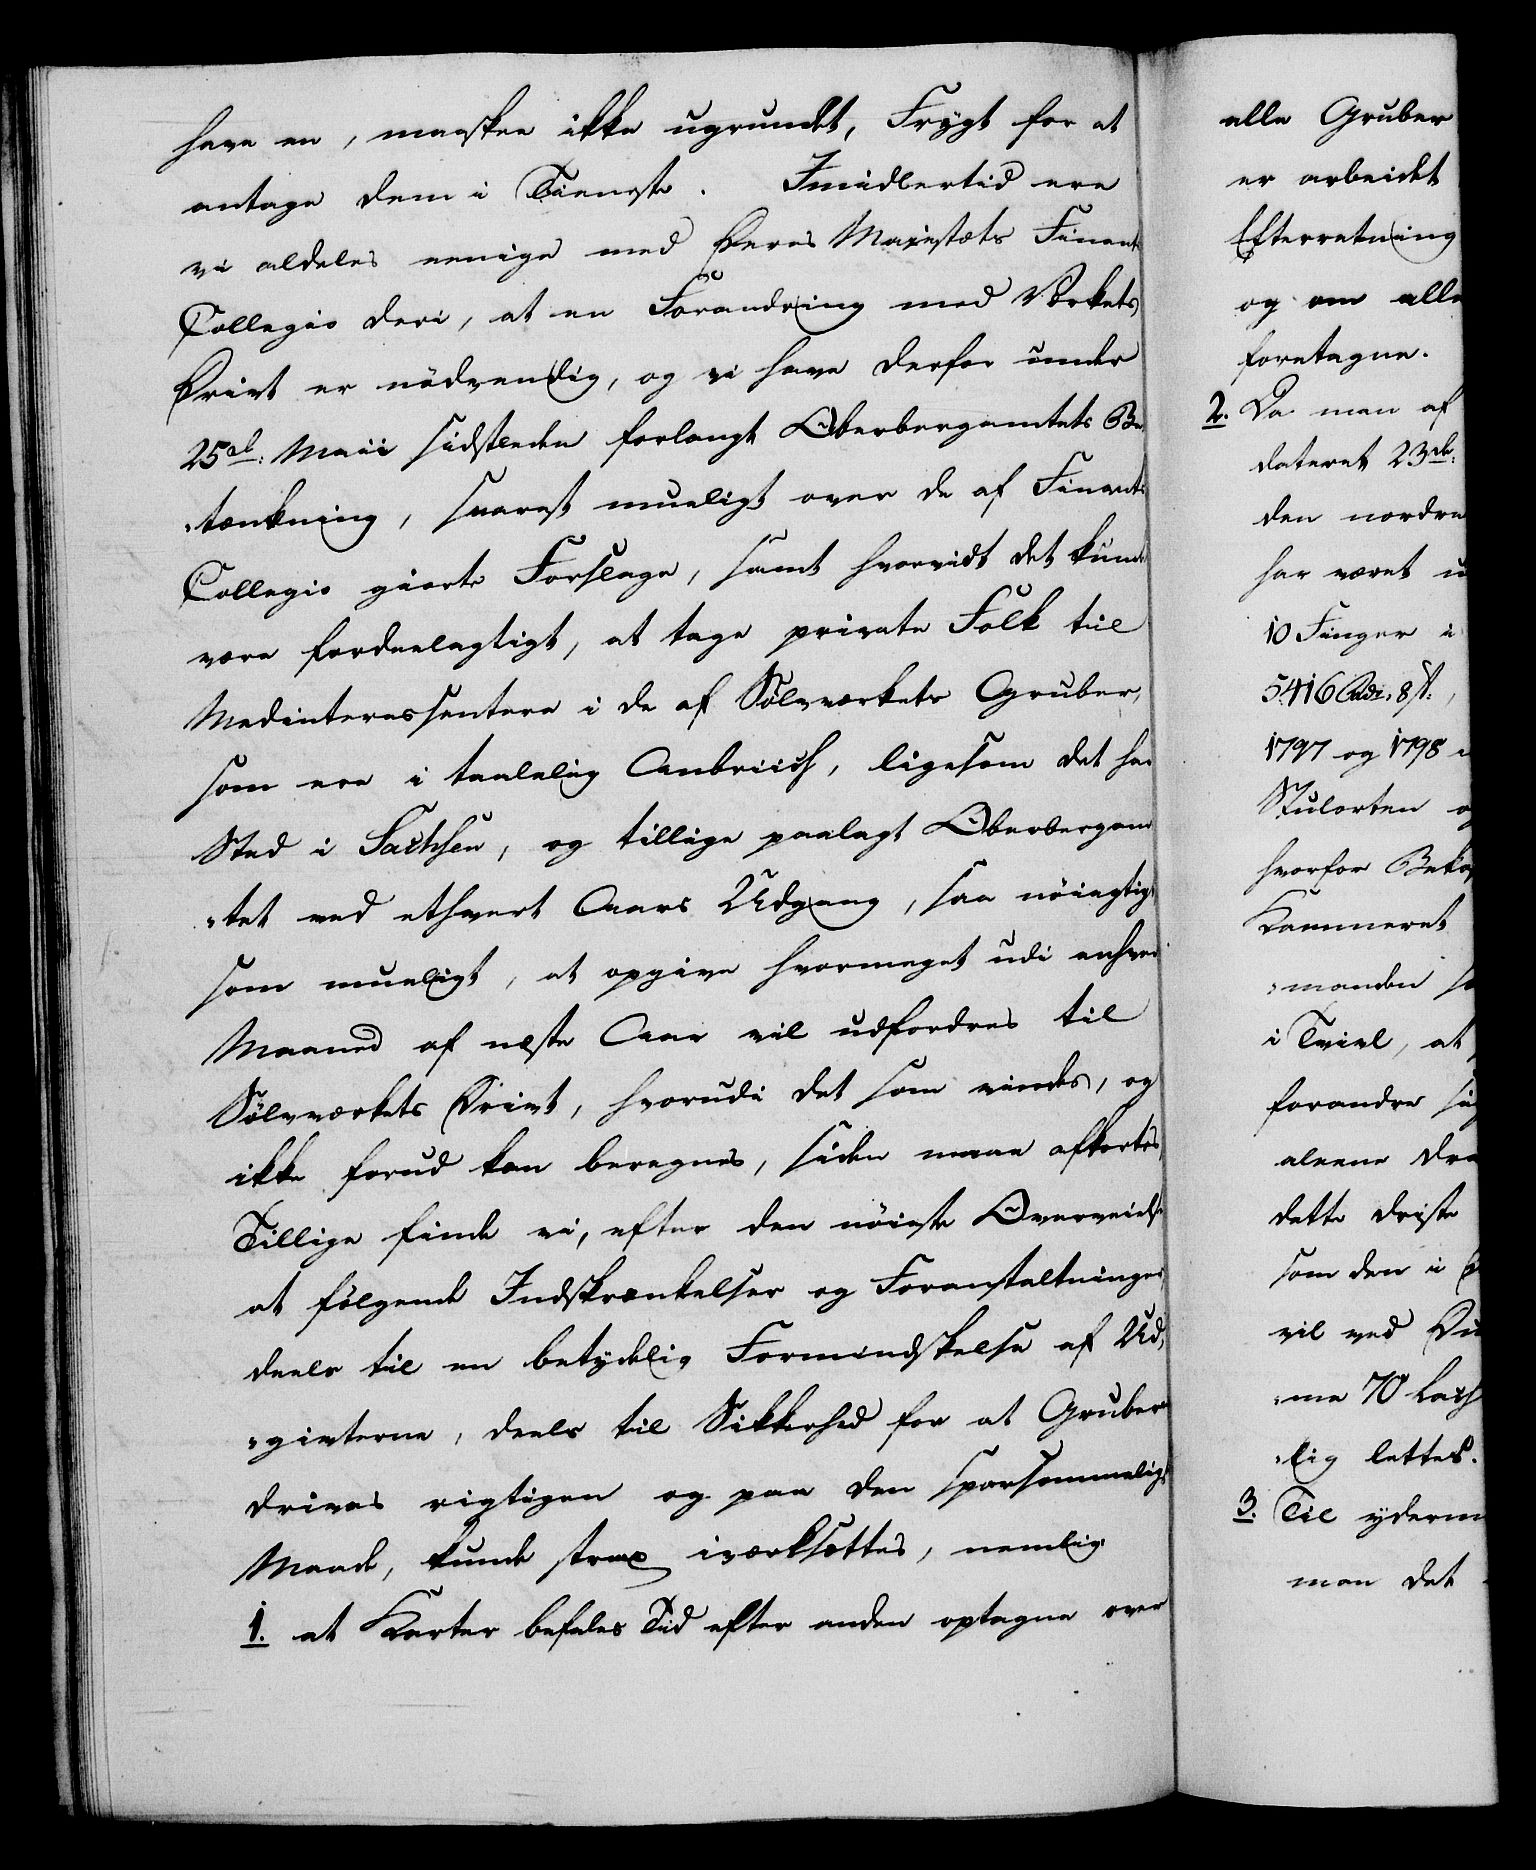 have en, maaskee ikke ugrundet, Frygt for at
antage dem i Tieneste. Imidlertid ere
vi aldeles eenige med Deres Majestæts Finants
Collegio deri, at en Forandring med Værkets
Drivt er nödvendig, og vi have derfor under
25d: Maii sidstleden forlangt Oberbergamtets Be
„tænkning, snarest mueligt over de af Finants
Collegio giorte Forslage, samt hvorvidt det kunde
være fordeelagtigt, at tage private Folk til
Medinteressentere i de af Sölvværkets Gruber,
som ere i taalelig Anbrüch, ligesom det har
Sted i Sachsen, og tillige paalagt Oberbergam
„tet ved ethvert Aars Udgang, saa nöiagtigt
som mueligt, at opgive hvormeget udi enhver
Maaned af næste Aar vil udfordres til
Sölvværkets Drivt, hvorudi det som vindes, og
ikke forud kan beregnes, siden maae afkortes,
Tillige finde vi, efter den nöieste Overveielse
at fölgende Indskrænkelser og Foranstaltninger
deels til en betydelig Formindskelse af Ud,
„givterne, deels til Sikkerhed for at Gruberne
drives rigtigen og paa den sparsommeligste
Maade, kunde strax iværksættes, nemlig
1. at Karter befales Tid efter anden optagne over
alle Gruber
er arbeidet
Efterretning
og om alle
foretagne.
2. Da man af
dateret 23de:
den nordre
har været
10 Finger i
5416 Rdr. 8 s.,
1797 og 1798
Stulorten
hvorfor
Kammeret
„manden
i Tvivl, at
forandre sig
aleene
dette driste
som den i
vil ved
„me 70
„lig lettes.
3. Til yderm
man det